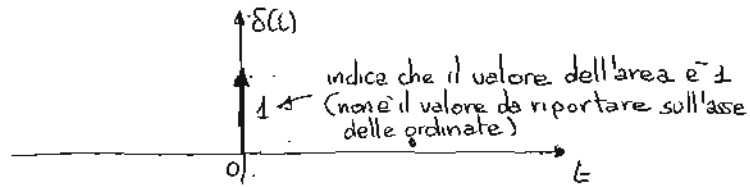 δ(t)
indica che il valore dell'area è 1
1 (non è il valore da riportare sull'asse
delle ordinate)
0
t